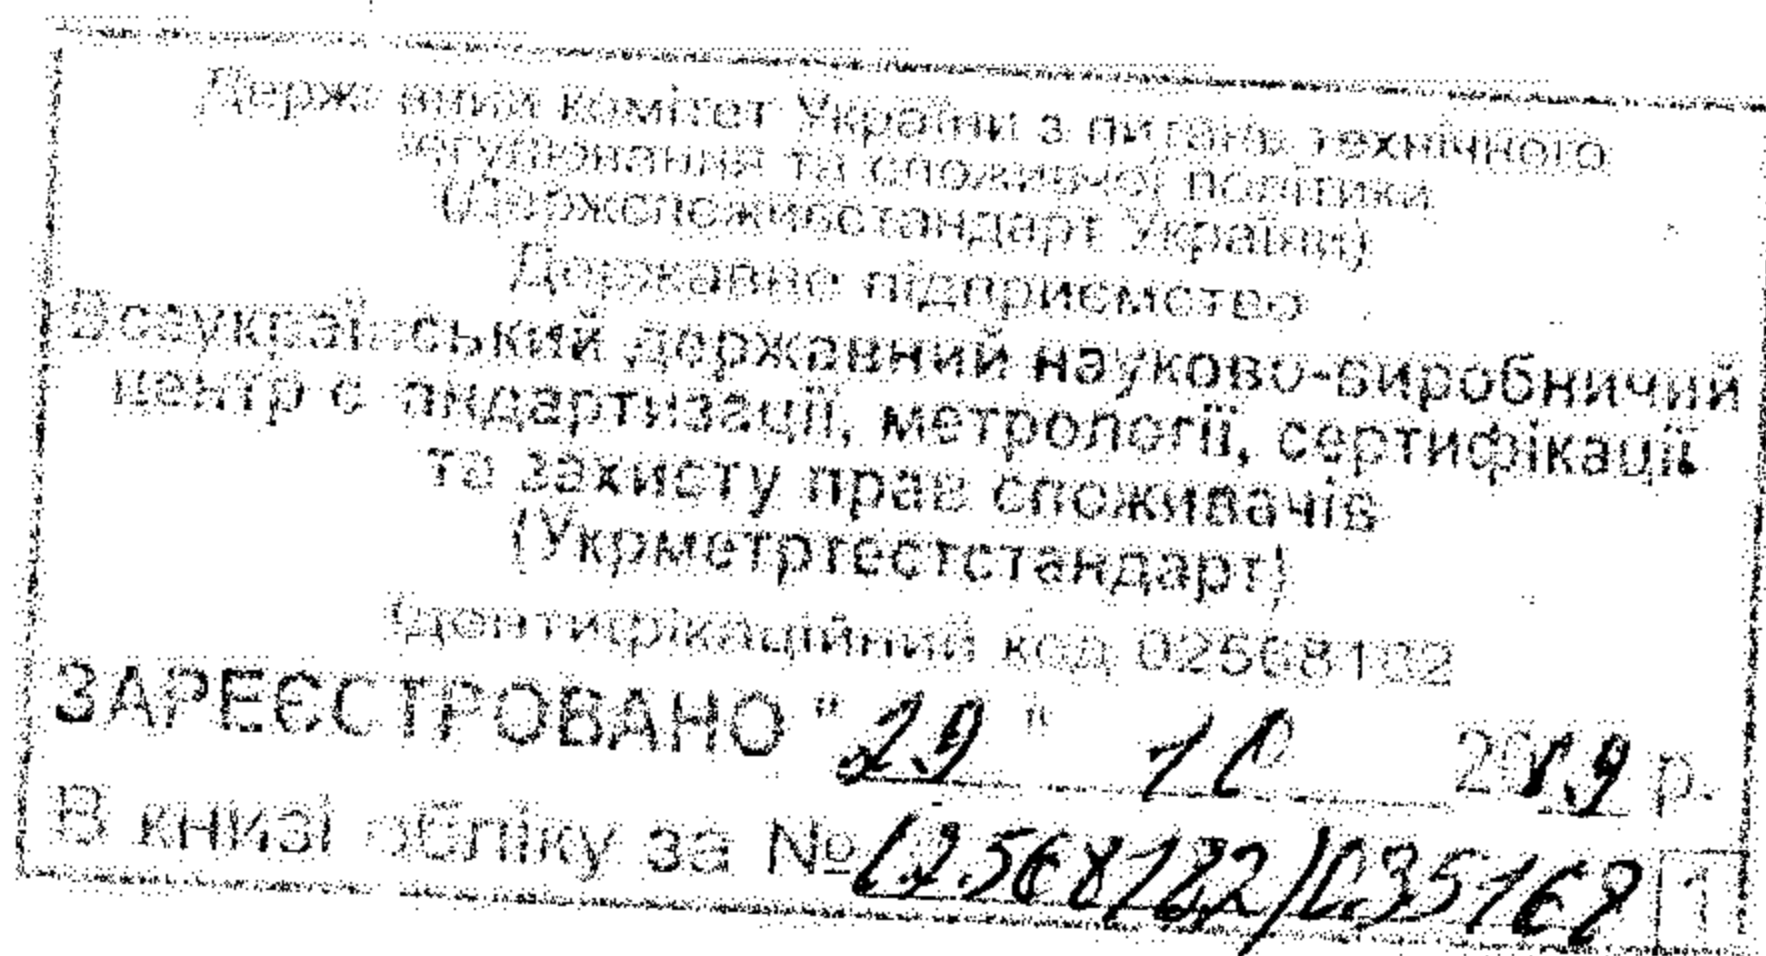 Державний комітет України з питань технічного
регулювання та споживчої політики
(Держспоживстандарт України)
Державне підприємство
Всеукраїнський державний науково-виробничий
центр стандартизації, метрології, сертифікації
та захисту прав споживачів
(Укрметртестстандарт)
Ідентифікаційний код 02568182
ЗАРЕЄСТРОВАНО "29" 10 2009 р.
В книзі обліку за № 02568182/035168 1